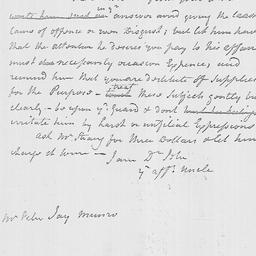 in yr
answer avoid giving the least
Cause of offence or even Disgust; but let him know
that the attention he desires you pay to his affairs
must also necessarily occasion Expence, and
remind him that you are destitute of Supplies
for the Purpose - treat these Subjects gently but
clearly - be upon yr. Guard & don't
irritate him by harsh or unfilial Expressions
ask Mr. Strang for three Dollars & let him
charge it to me - I am Dr. Peter
yr. afft. Uncle
Mr. Peter Jay Munro